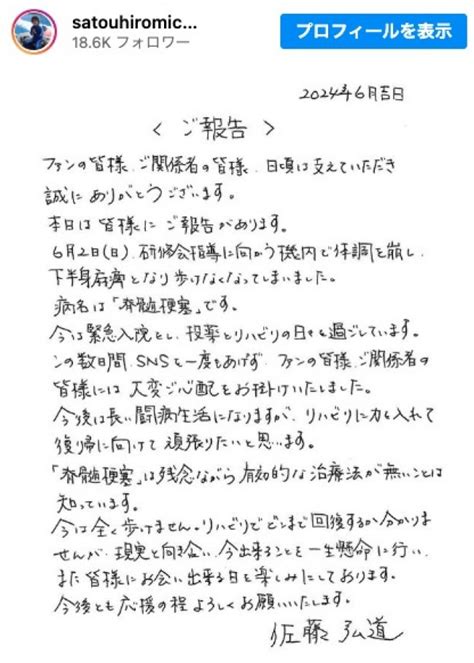 satouhiromic...
18.6K フォロワー
プロフィールを表示
2024年6月吉日
＜ ご報告 ＞
ファンの皆様、ご関係者の皆様、日頃は支えていただき
誠にありがとうございます。
本日は皆様にご報告があります。
6月2日(日)、研修会指導に向かう機内で体調を崩し、
下半身麻痺となり歩けなくなってしまいました。
病名は「脊髄梗塞」です。
今は緊急入院をし、投薬とリハビリの日々を過ごしています。
この数日間、SNSを一度もあげず、ファンの皆様、ご関係者の
皆様には大変ご心配をお掛けいたしました。
今後は長い闘病生活になりますが、リハビリに力を入れて
復帰に向けて頑張りたいと思います。
「脊髄梗塞」は残念ながら有効的な治療法が無いことは
知っています。
今は全く歩けません。リハビリでどこまで回復するか分かりま
せんが、現実と向き合い、今出来ることを一生懸命に行い、
また皆様にお会い出来る日を楽しみにしております。
今後とも応援の程よろしくお願いいたします。
佐藤弘道